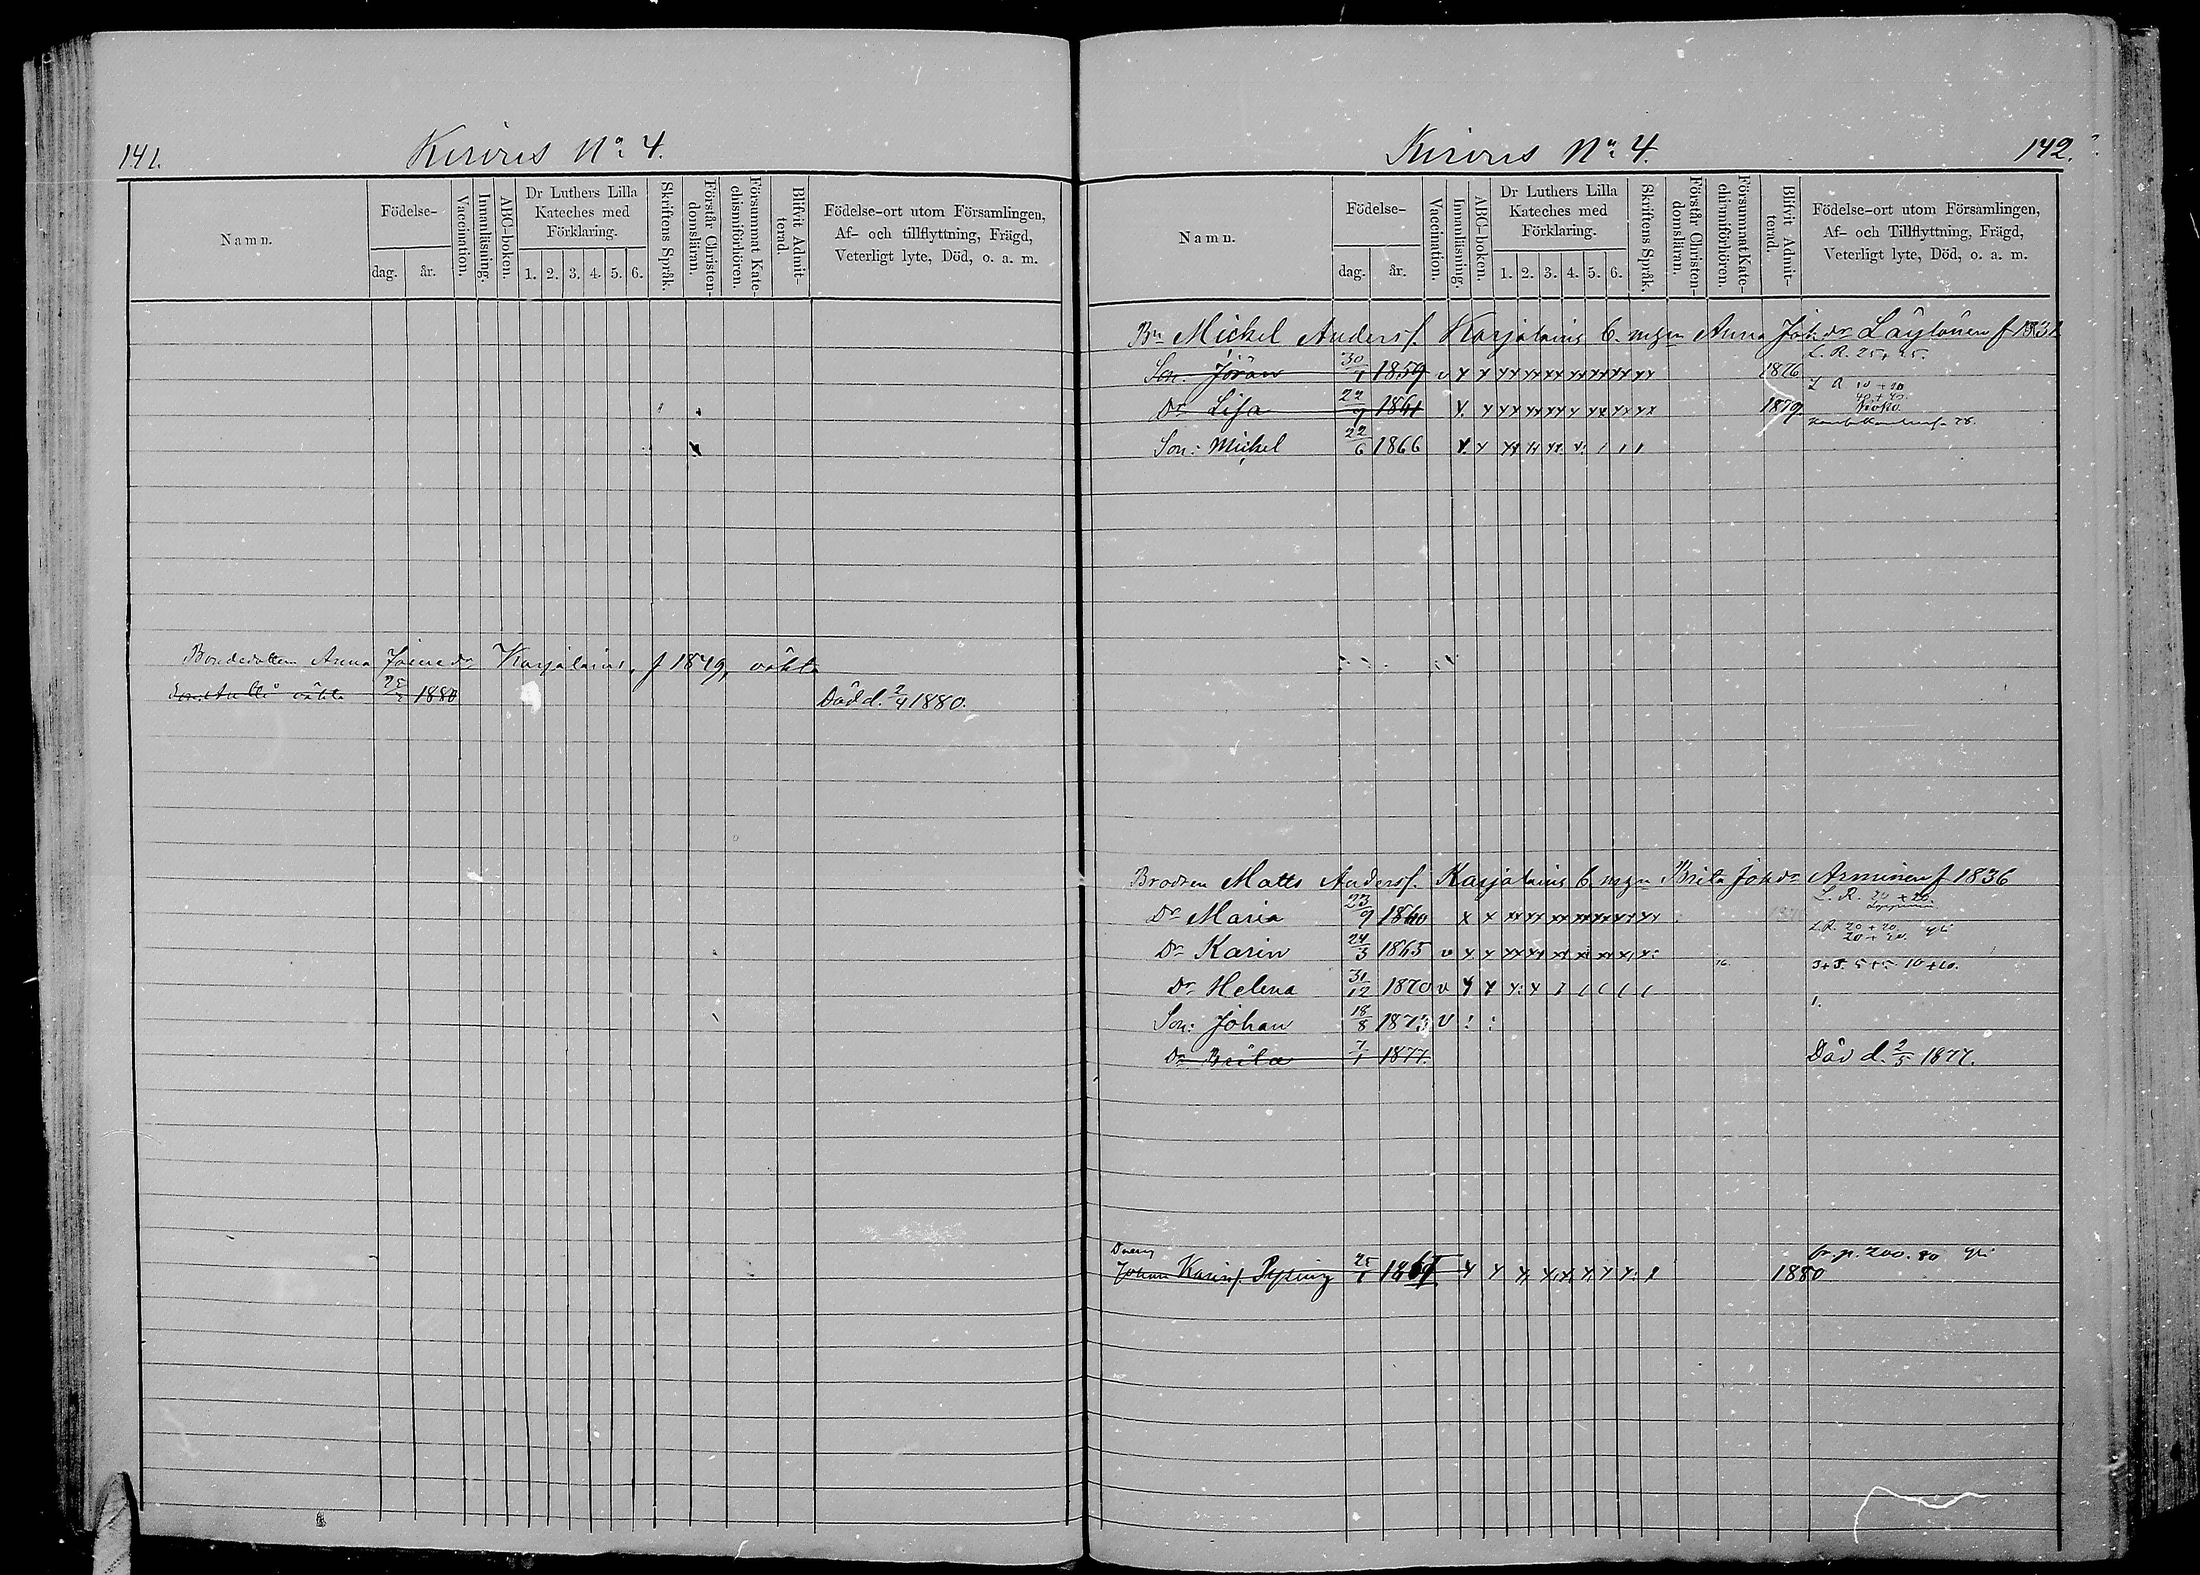 141.
Kirivis No 4.
Namn.
Födelse-
dag. år.
Vaccination.
Innanläsning.
ABC-boken.
Dr Luthers Lilla Kateches med Förklaring.
1. 2. 3. 4. 5. 6.
Skriftens Språk.
Förstår Christendomsläran.
Försummat Katechismiförhören.
Blifvit Admitterad.
Födelse-ort utom Församlingen,
Af- och tillflyttning, Frägd,
Veterligt lyte, Död, o. a. m.
Bondedottern Anna Karjalain. f 1849, oäkta
oäkta 1880 Död d. 2/4 1880.
Kirivis No 4.
142.
Namn.
Födelse-
dag. år.
Vaccination.
Innanläsning.
ABC-boken.
Dr Luthers Lilla Kateches med Förklaring.
1. 2. 3. 4. 5. 6.
Skriftens Språk.
Förstår Christendomsläran.
Försummat Katechismiförhören.
Blifvit Admitterad.
Födelse-ort utom Församlingen,
Af- och Tillflyttning, Frägd,
Veterligt lyte, Död, o. a. m.
Bn Michel Andersf. Karjalains b. m. Anna Joh.dr Läylönen f 1831
L. R. 25+25.
Son. Jöran 30/1 1859 v x x xx xx xx xx xx xx xx 1876
L R 10+10
40+40.
Dr Lisa 1861 x. x xx xx xx x xx xx xx 1879.
Son: Michel 22/6 1866 x. x xx xx xx x. / / /
Brodren Matts Andersf. Karjalains b. m. Brita Joh.dr Arminen f 1836
L. R. 20+20.
Dr Maria 23/9 1860 x x xx xx xx xx xx xx xx
L.R. 20+20
20+20.
Dr Karin 24/3 1865 v x x xx xx xx xx xx x, x:
3+3. 5+5 10+10.
Dr Helena 31/12 1870 v x x x: x / / / / /
1.
Son: Johan 18/8 1873 v : :
Dr Brita 7/1 1877. Död d. 2/5 1877.
Dreng
br. p. 200. 80
Johan Karinsf. 25/1 x x x x x x x x: 1880